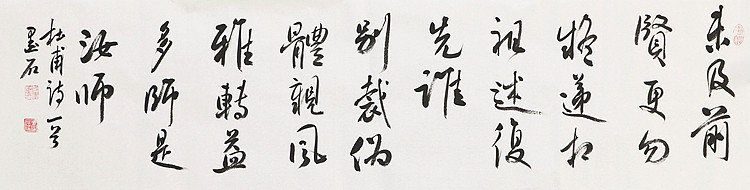 未及前
賢更勿
疑遞相
祖述復
先誰
別裁偽
體親風
雅轉益
多師是
汝師
杜甫詩一首
墨石